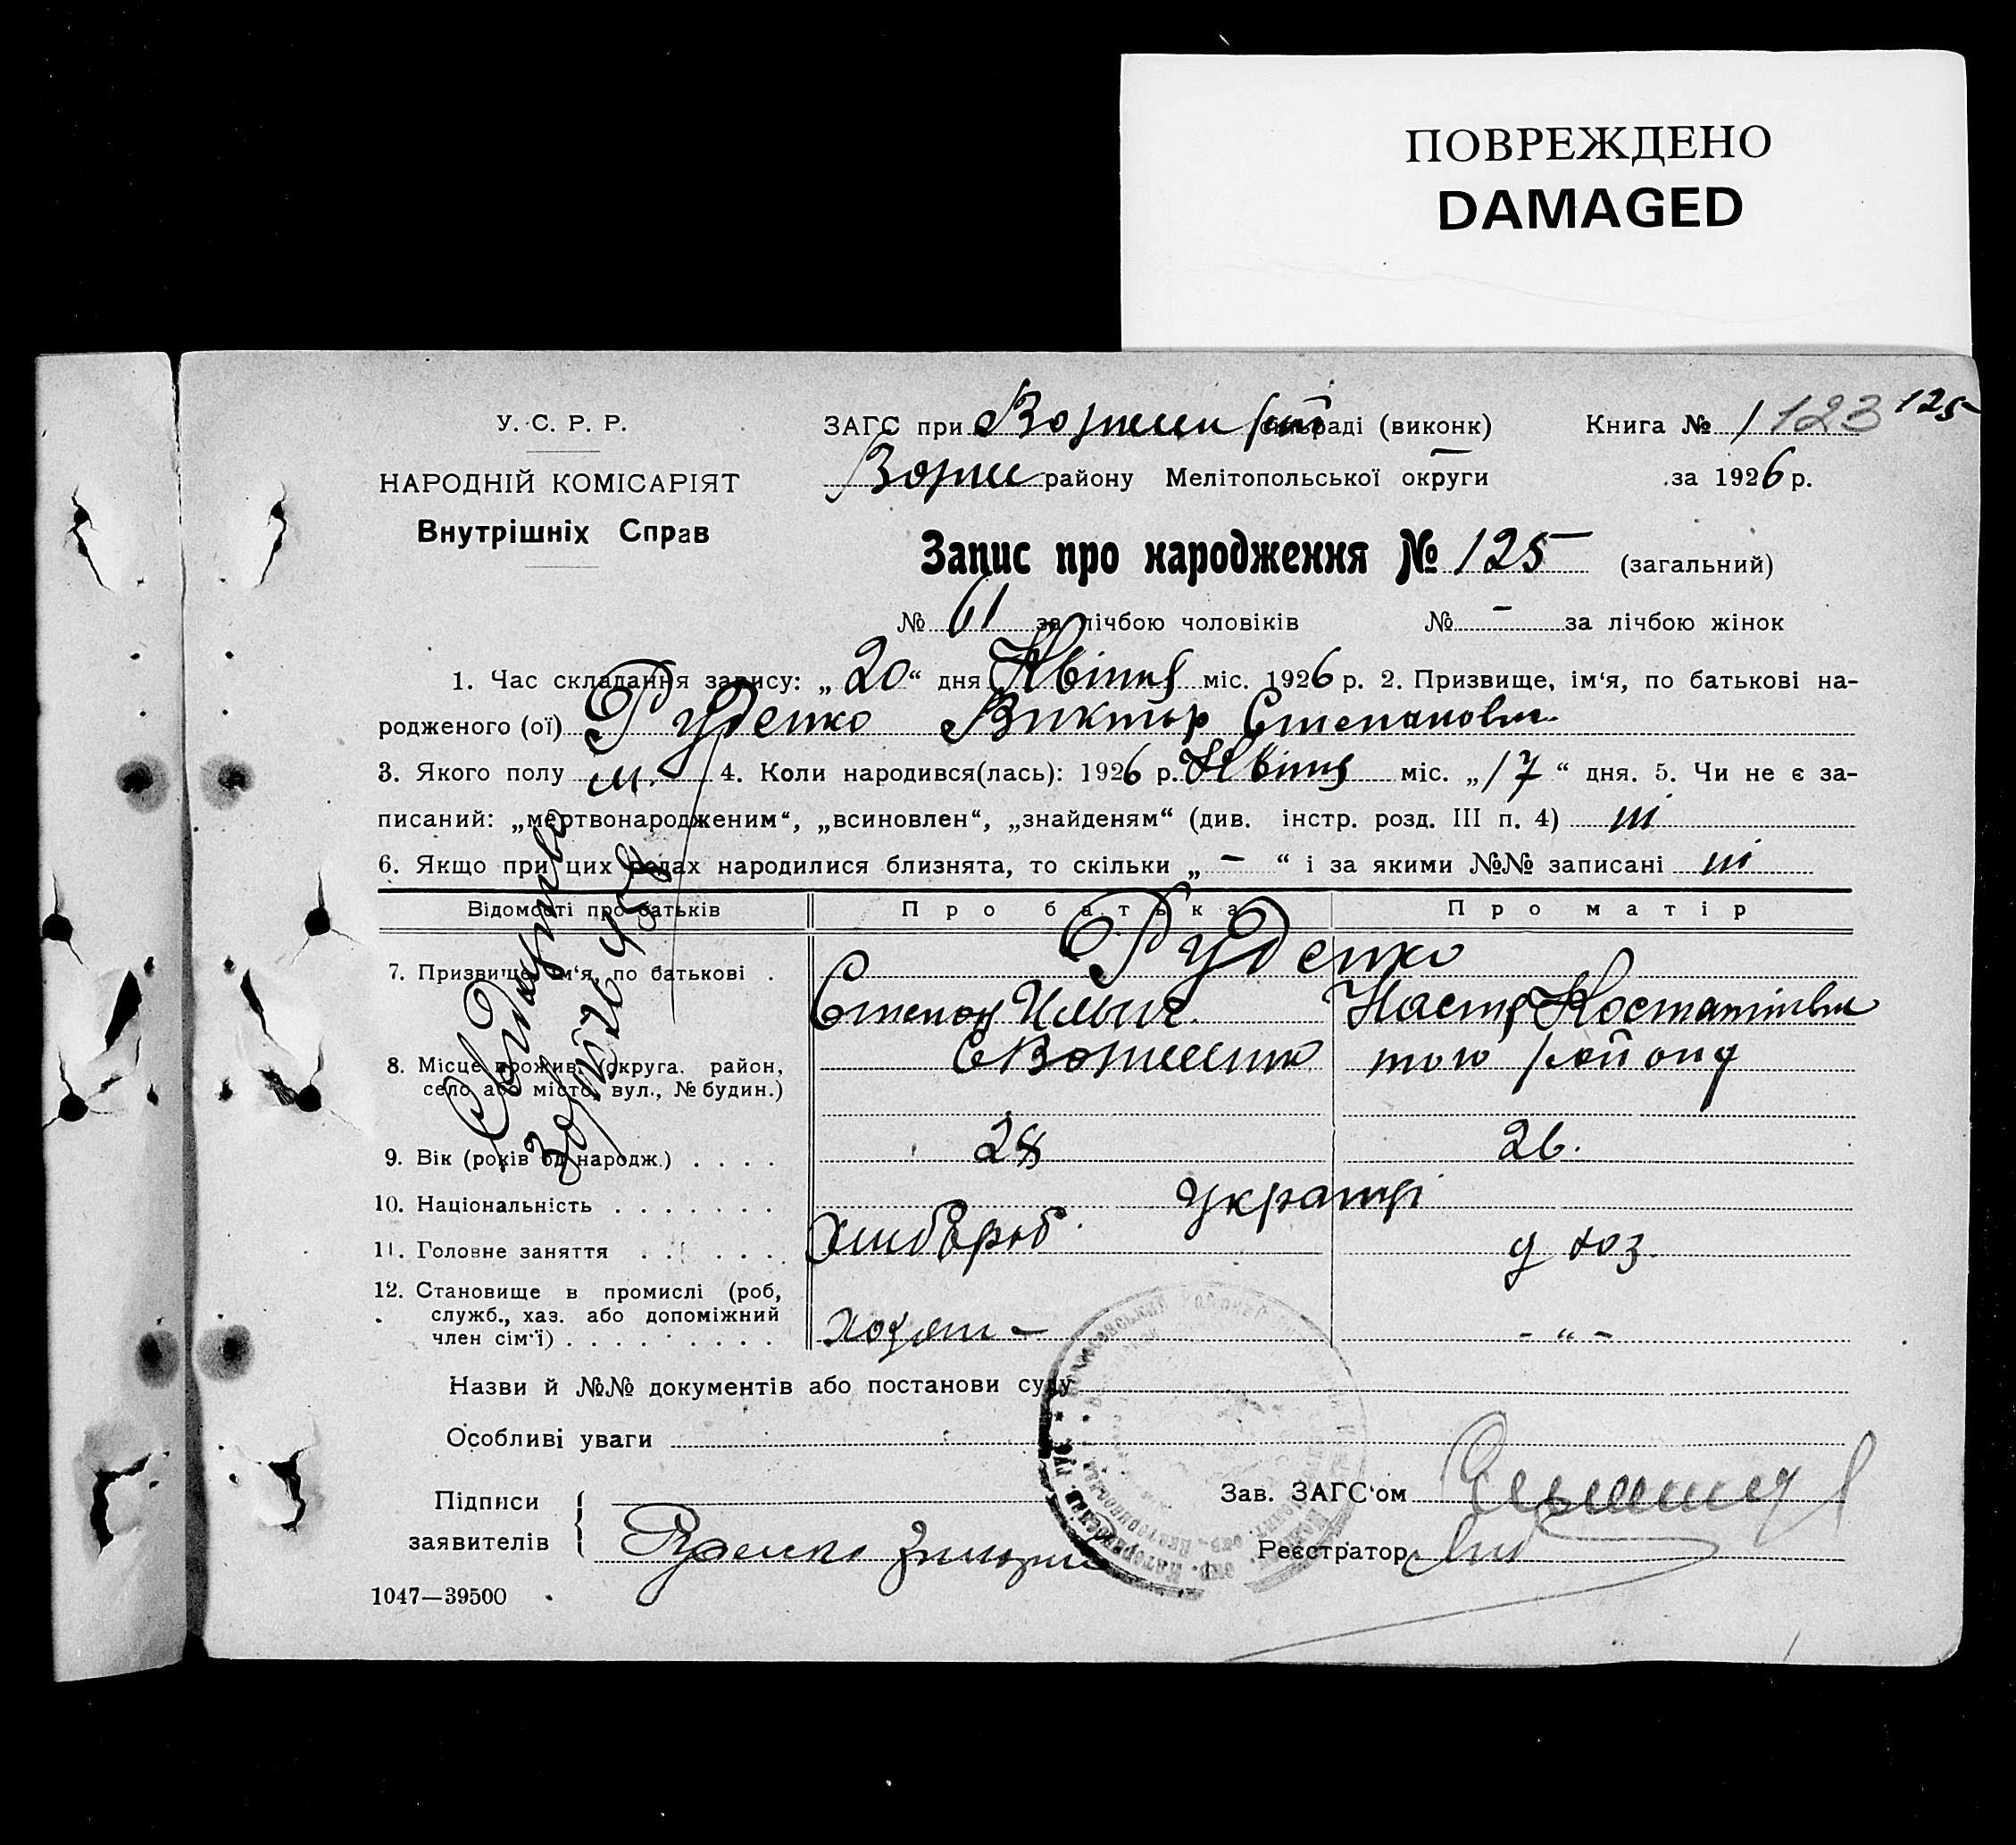 ПОВРЕЖДЕНО
DAMAGED
У. С. Р. Р.
НАРОДНІЙ КОМІСАРІЯТ
Внутрішніх Справ
ЗАГС при раді (виконк)
Книга № 1 123 125
району Мелітопольської округи
за 1926 р.
Запис про народження № 125 (загальний)
№ 61 за лічбою чоловіків № - за лічбою жінок
1. Час складання запису: „20“ дня Квітня міс. 1926 р. 2. Призвище, ім‘я, по батькові на-
родженого (ої) Руденко Виктор Степанович
3. Якого полу м. 4. Коли народився(лась): 1926 р. Квітня міс. „17“ дня. 5. Чи не є за-
писаний: „мертвонародженим“, „всиновлен“, „знайденям“ (див. інстр. розд. III п. 4) ні
6. Якщо при цих родах народилися близнята, то скільки „-“ і за якими №№ записані ні
Відомості про батьків Про батька Про матір
Руденко
7. Призвище, ім‘я, по батькові .
Степан Ильич Настя
8. Місце прожив. (округа, район,
село або місто, вул., № будин.)
того району
9. Вік (років од народж.) . . . . 28 26.
10. Національність . . . . . . . Українці
11. Головне заняття . . . . . . Хлибороб д хоз.
12. Становище в промислі (роб,
служб., хаз. або допоміжний
член сім‘ї) . . . . . . . . . - „ -
Назви й №№ документів або постанови суду
Особливі уваги
Підписи
заявителів
Руденко
Зав. ЗАГС‘ом
Реєстратор
1047—39500